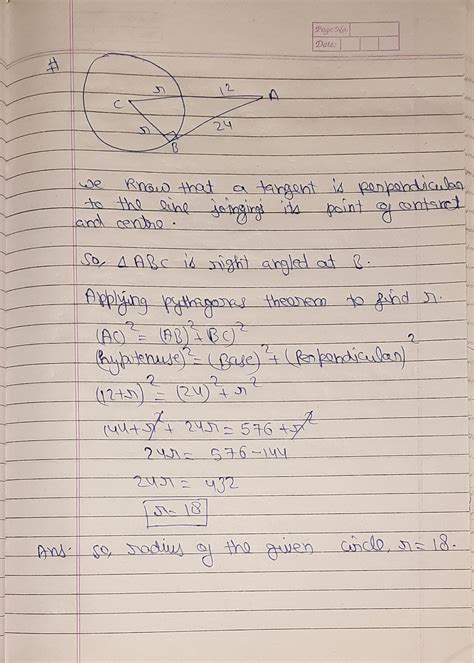 Page No.
Date:
#
C r 12 A
r 24
B
we know that a tangent is perpendicular
to the line joinging its point of contact
and centre.
So, △ABC is right angled at B.
Applying pythagoras theorem to find r.
(AC)² = (AB)² + BC)²
(hypotenuse)² = (Base)² + (Perpendicular)²
(12+r)² = (24)² + r²
144 + r² + 24r = 576 + r²
24r = 576 - 144
24r = 432
r = 18
Ans. So, radius of the given circle, r = 18.